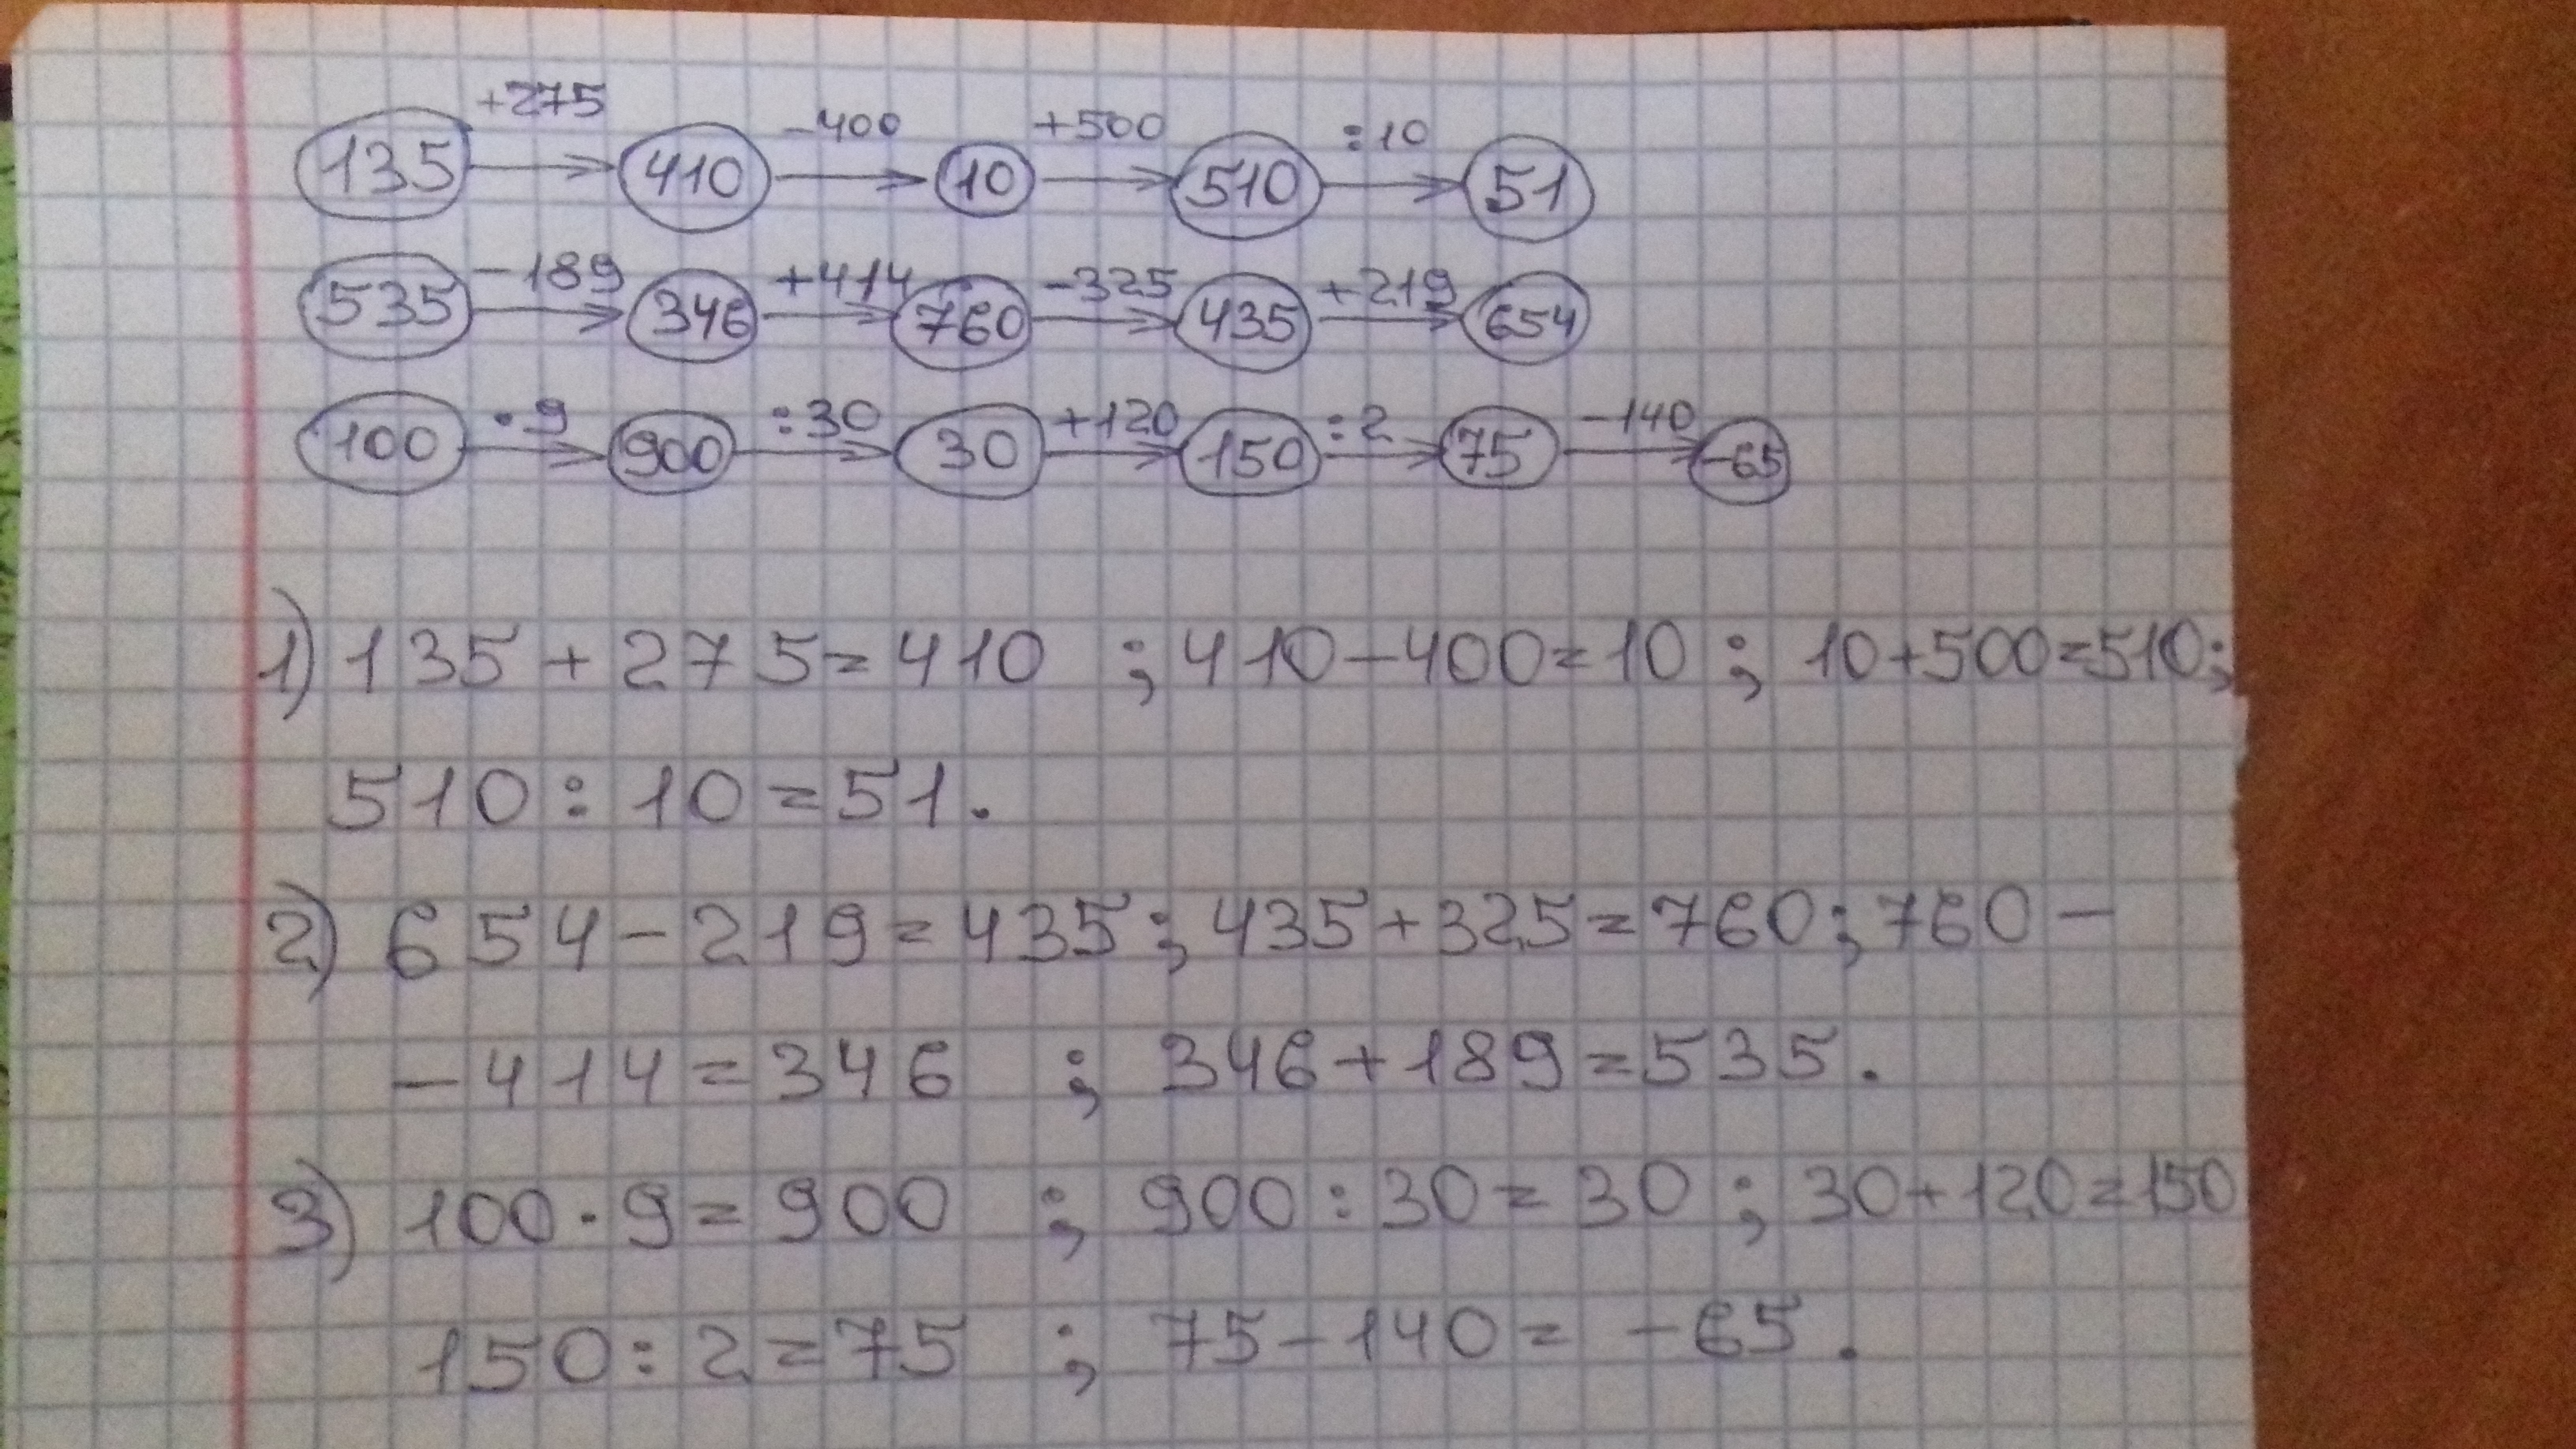 135 +275 410 -400 10 +500 510 :10 51
535 -189 346 +414 760 -325 435 +219 654
100 ·9 900 :30 30 +120 150 :2 75 -140 -65
1) 135+275=410 ; 410-400=10 ; 10+500=510;
510:10=51.
2) 654-219=435; 435+325=760; 760-
-414=346 ; 346+189=535.
3) 100·9=900 ; 900:30=30 ; 30+120=150
150:2=75 ; 75-140= -65.